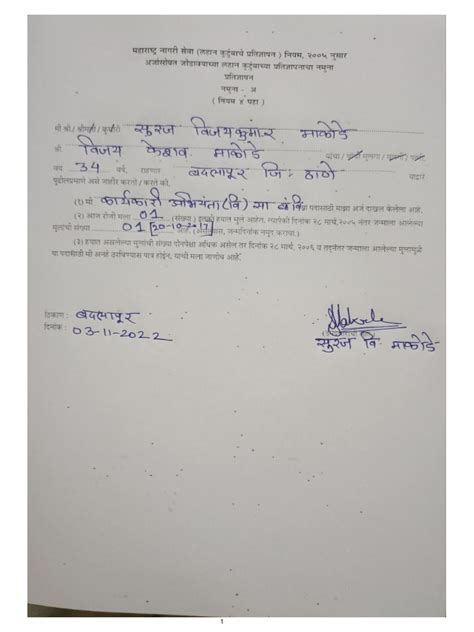 महाराष्ट्र नागरी सेवा (लहान कुटुंबाचे प्रतिज्ञापन) नियम, २००५ नुसार
अर्जासोबत जोडावयाच्या लहान कुटुंबाच्या प्रतिज्ञापनाचा नमुना
प्रतिज्ञापन
नमुना - अ
( नियम ४ पहा )
मी श्री./ श्रीमती / कुमारी सुरज विजयकुमार माकोडे
श्री. विजय केशव माकोडे यांचा / यांची मुलगा / मुलगी / पत्नी
वय 34 वर्ष, राहणार बदलापूर जि: ठाणे याद्वारे
पुढीलप्रमाणे असे जाहीर करतो / करते की.
(1) मी कार्यकारी अभियंता (वि) सा बां वि या पदासाठी माझा अर्ज दाखल केलेला आहे.
(२) आज रोजी मला 01 (संख्या) इतकी हयात मुले आहेत, त्यापैकी दिनांक २८ मार्च,२००५ नंतर जन्माला आलेल्या
मुलांची संख्या 01 [20-10-2017] आहे. (असल्यास, जन्मदिनांक नमूद करावा.)
(३) हयात असलेल्या मुलांची संख्या दोनपेक्षा अधिक असेल तर दिनांक २८ मार्च, २००६ व तद्नंतर जन्माला आलेल्या मुलामुळे
या पदासाठी मी अनर्ह ठरविण्यास पात्र होईन, याची मला जाणीव आहे.
ठिकाण : बदलापूर
दिनांक : 03-11-2022
सुरज वि. माकोडे
1